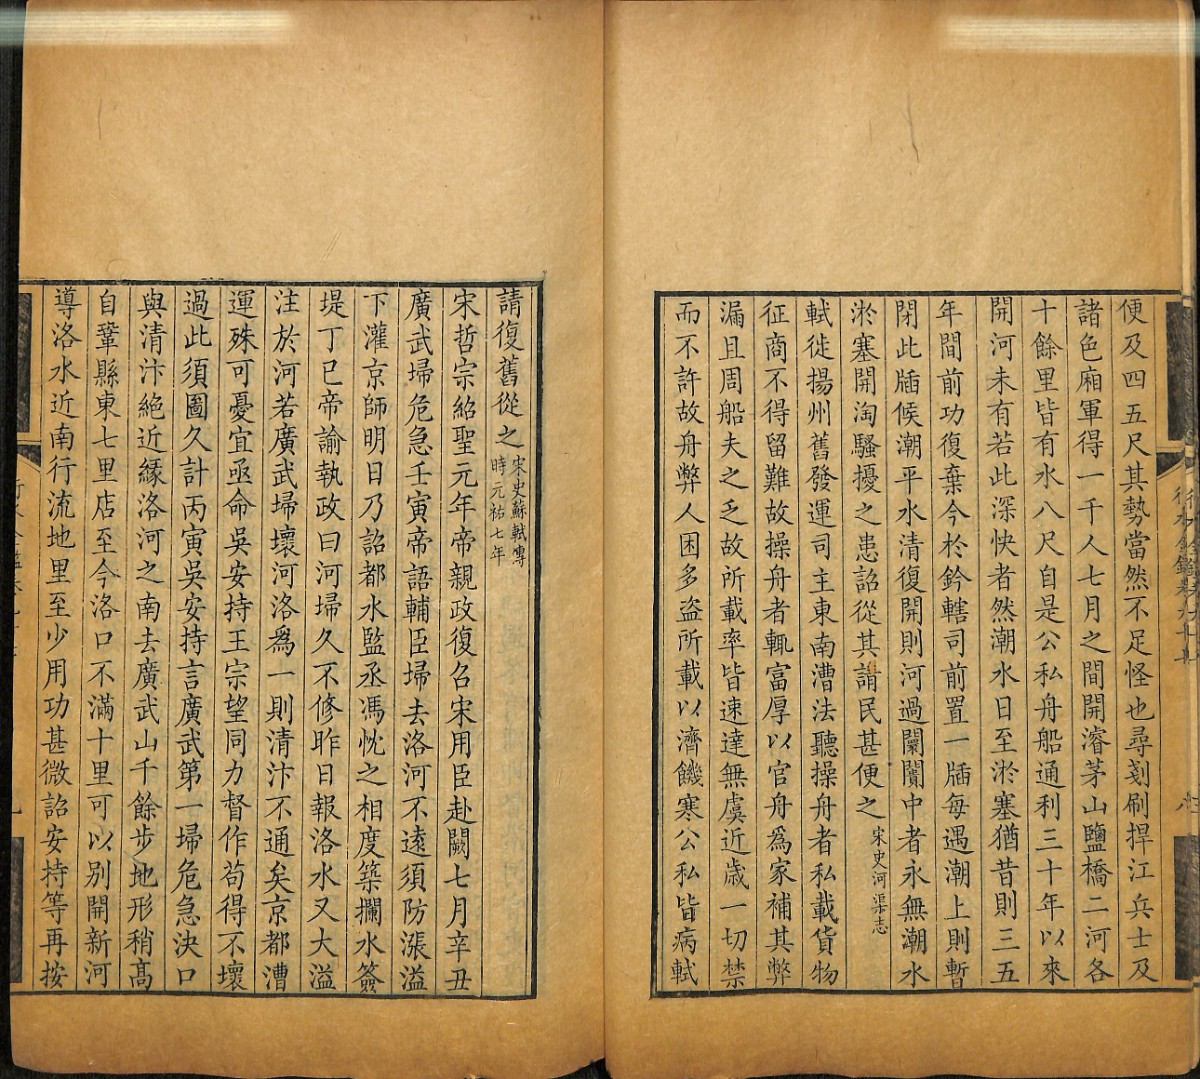 便及四五尺其勢當然不足怪也尋剗刷捍江兵士及
諸色廂軍得一千人七月之間開濬茅山鹽橋二河各
十餘里皆有水八尺自是公私舟船通利三十年以來
開河未有若此深快者然潮水日至淤塞猶昔則三五
年間前功復棄今於鈐轄司前置一牐每遇潮上則暫
閉此牐候潮平水清復開則河過闤闠中者永無潮水
淤塞開淘騷擾之患詔從其請民甚便之宋史河渠志
軾徙揚州舊發運司主東南漕法聽操舟者私載貨物
征商不得留難故操舟者輒富厚以官舟爲家補其弊
漏且周船夫之乏故所載率皆速達無虞近歳一切禁
而不許故舟弊人困多盜所載以濟饑寒公私皆病軾
請復舊從之宋史蘇軾專
時元祐七年
宋哲宗紹聖元年帝親政復召宋用臣赴闕七月辛丑
廣武埽危急壬寅帝語輔臣埽去洛河不遠須防漲溢
下灌京師明日乃詔都水監丞馮忱之相度築攔水簽
堤丁巳帝諭執政曰河埽久不修昨日報洛水又大溢
注於河若廣武埽壞河洛爲一則清汴不通矣京都漕
運殊可憂宜亟命吳安持王宗望同力督作苟得不壞
過此須圖久計丙寅吳安持言廣武第一埽危急決口
與清汴絕近緣洛河之南去廣武山千餘步地形稍高
自鞏縣東七里店至今洛口不滿十里可以別開新河
導洛水近南行流地里至少用功甚微詔安持等再按